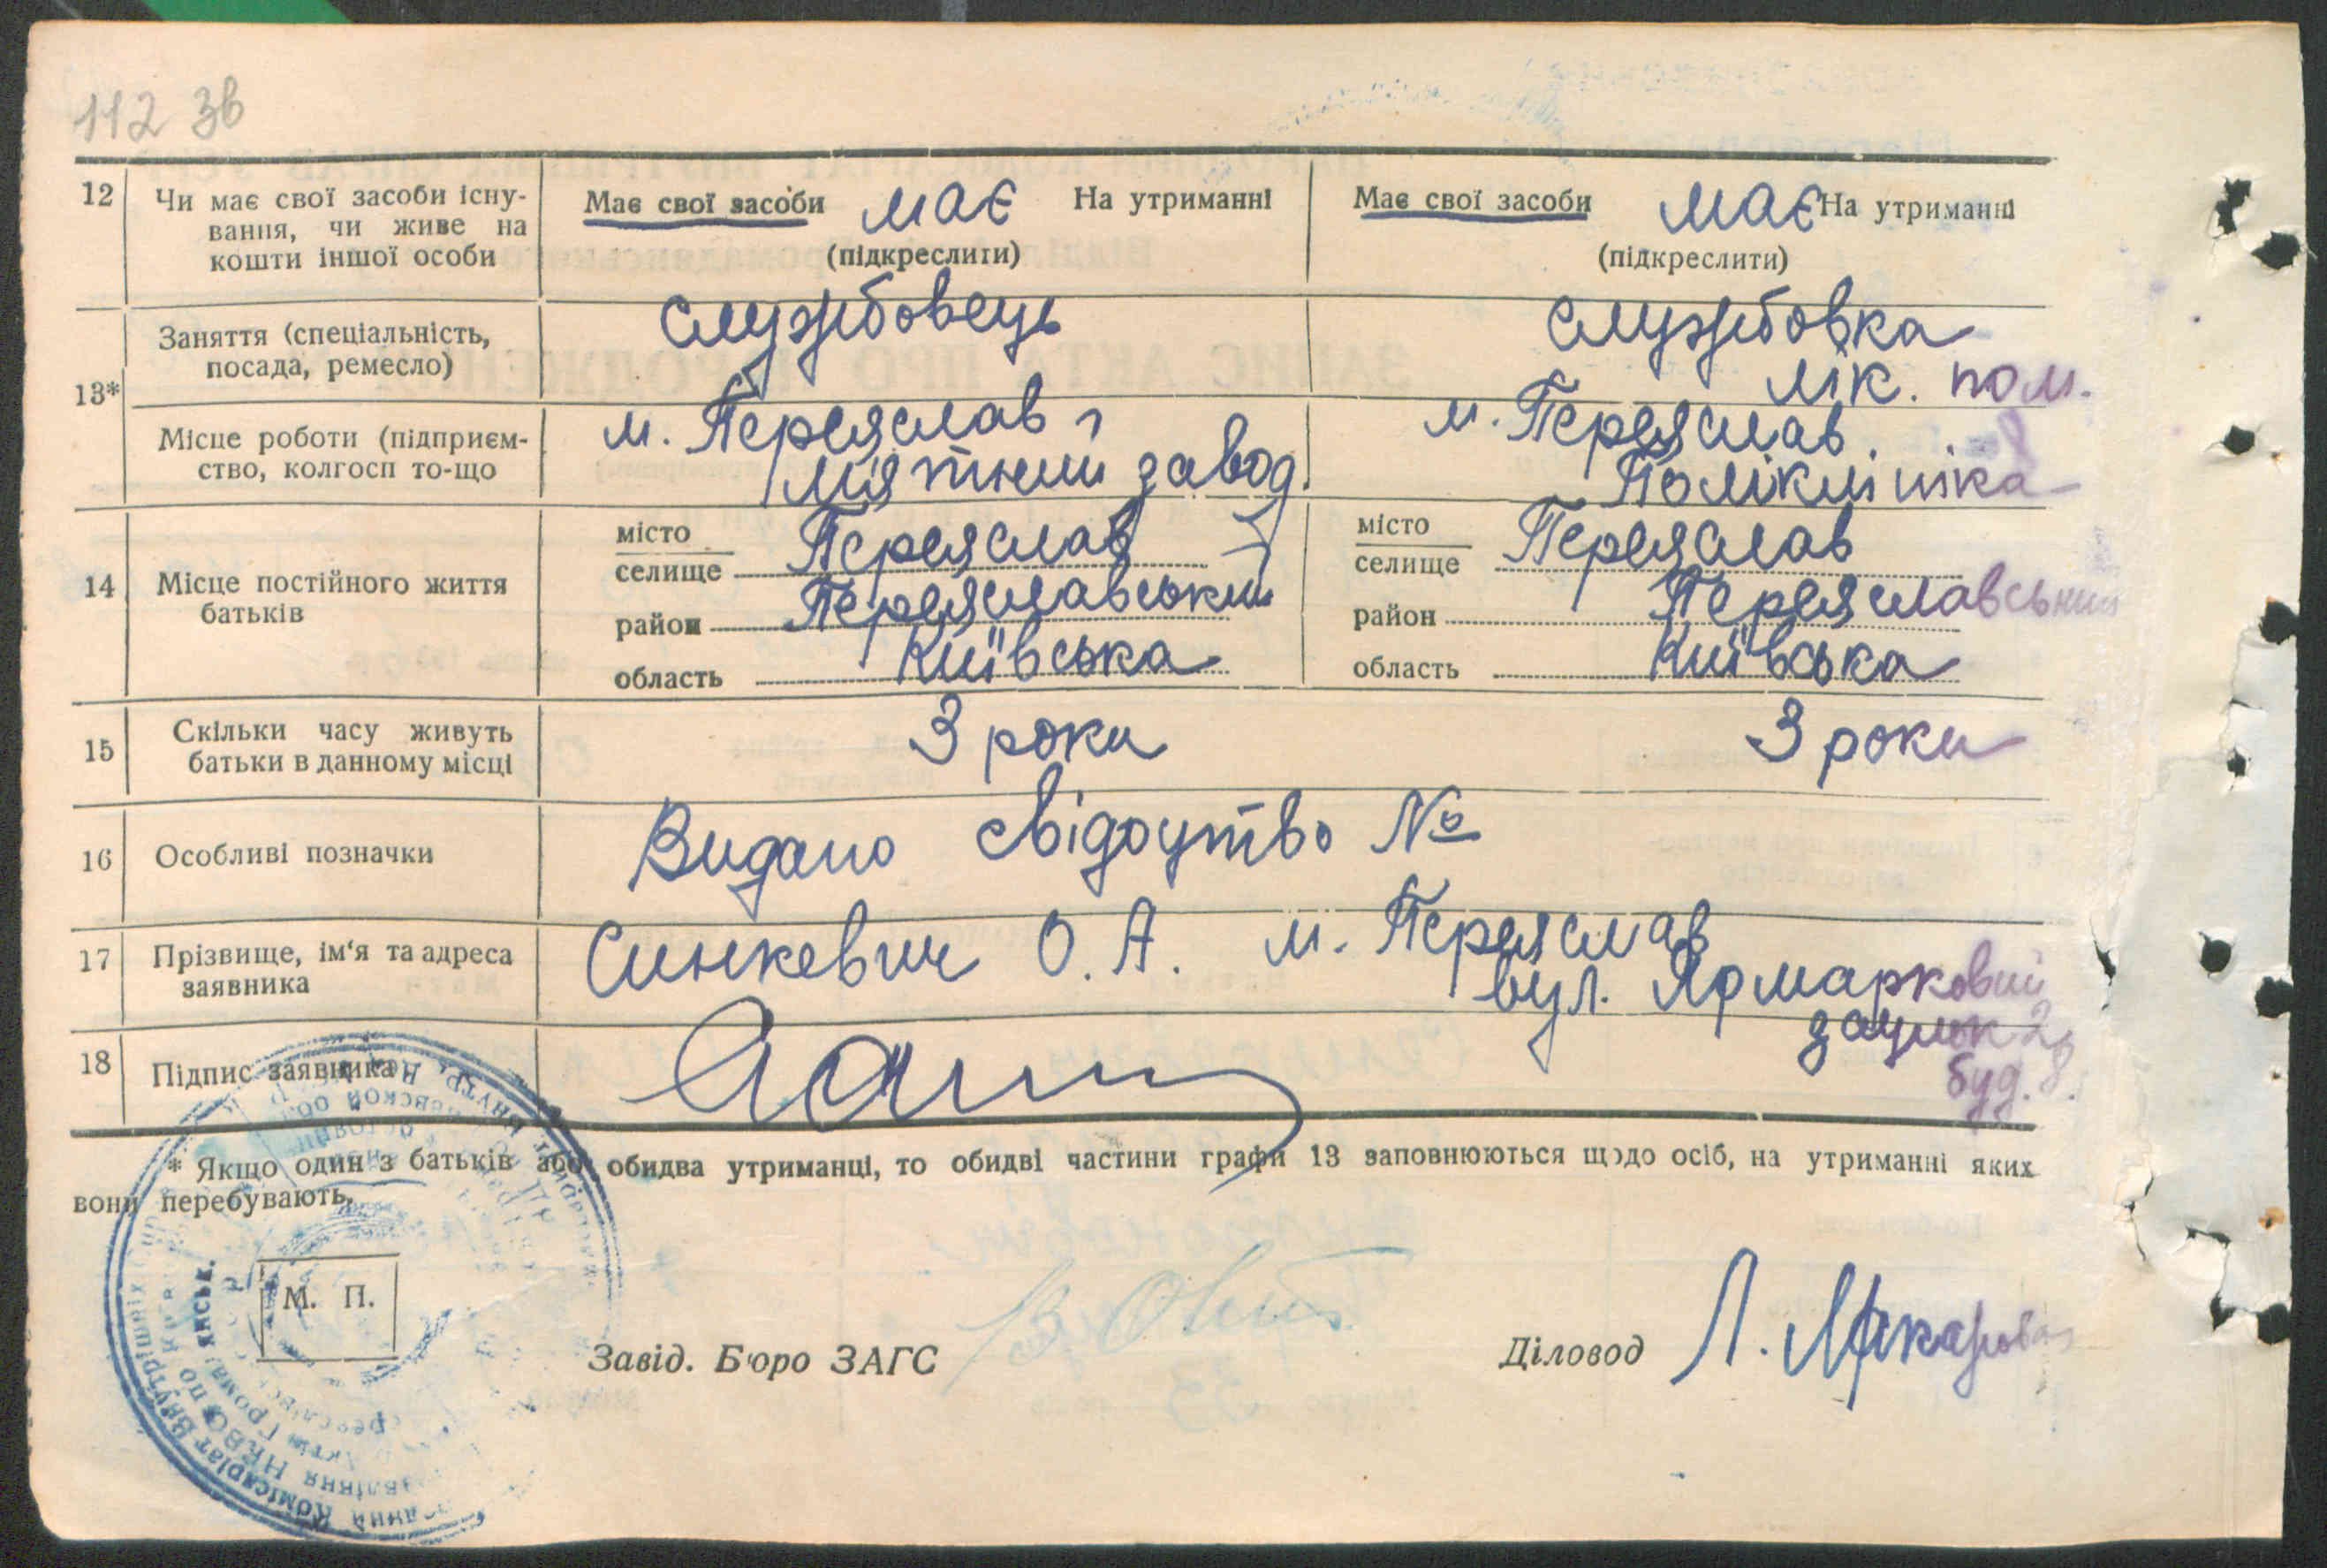 112 зв
12 Чи має свої засоби існу- Має свої засоби має На утриманні Має свої засоби має На утриманні
вання, чи живе на
кошти іншої особи (підкреслити) (підкреслити)
Заняття (спеціальність, службовець службовка
посада, ремесло) лік. пом.
13*
Місце роботи (підприєм- м. Переяслав м. Переяслав.
ство, колгосп то-що м'ятний завод. Поліклініка
місто Переяслав місто Переяслав
селище селище
14 Місце постійного життя
батьків
район Переяславський район Переяславський
область Київська область Київська
15 Скільки часу живуть 3 роки 3 роки
батьки в данному місці
16 Особливі позначки Видано свідоцтво №
17 Прізвище, ім'я та адреса Синкевич О. А. м. Переяслав
заявника вул. Ярмарковий
зауլок 2
буд. 8.
18 Підпис заявника
* Якщо один з батьків або обидва утриманці, то обидві частини графи 13 заповнюються щодо осіб, на утриманні яких
вони перебувають.
М. П.
Завід. Бюро ЗАГС Діловод Л. Макарова